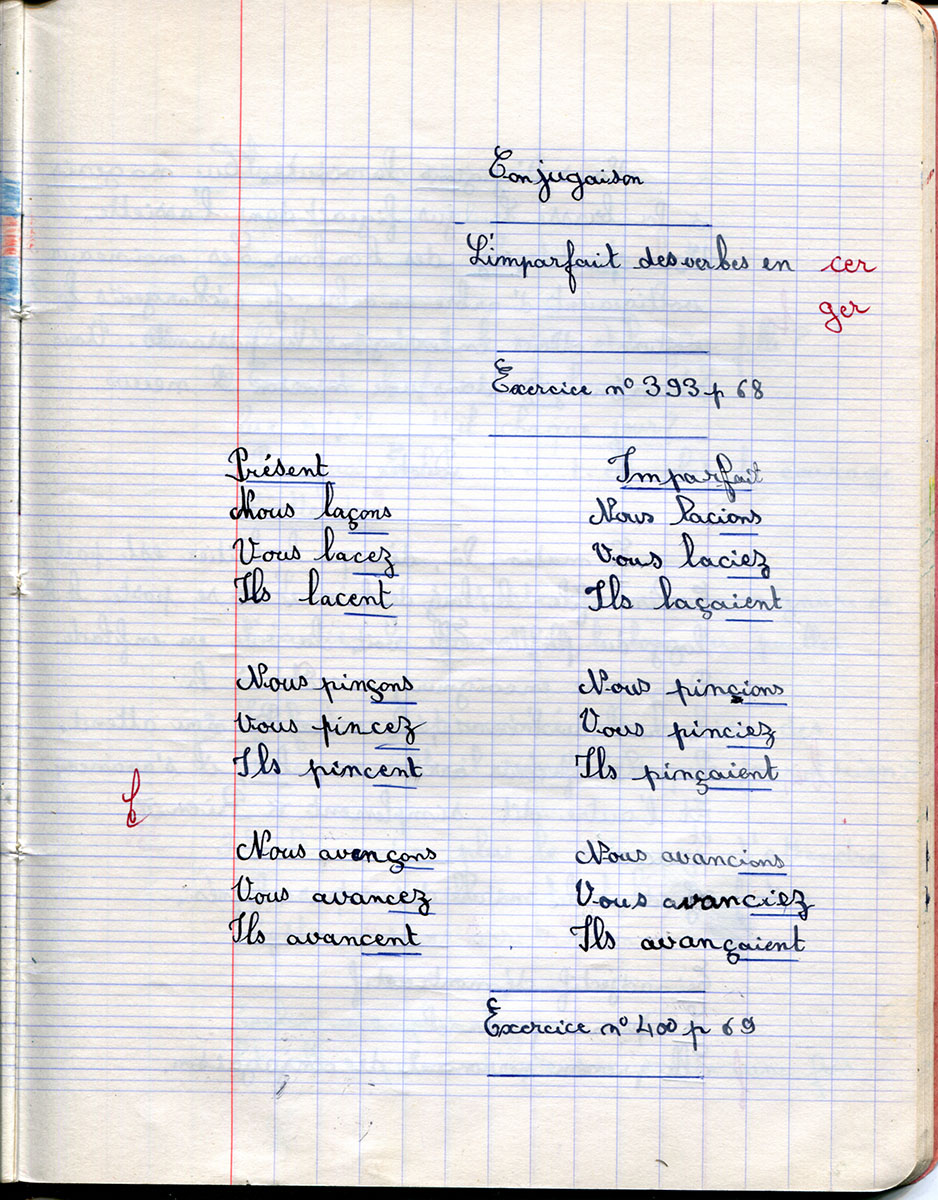 Conjugaison
L'imparfait des verbes en cer
ger
Exercice n° 393 p 68
Présent Imparfait
Nous laçons Nous lacions
Vous lacez Vous laciez
Ils lacent Ils laçaient
Nous pinçons Nous pincions
Vous pincez Vous pinciez
Ils pincent Ils pinçaient
Nous avençons Nous avancions
Vous avancez Vous avanciez
Ils avancent Ils avançaient
Exercice n° 400 p 69